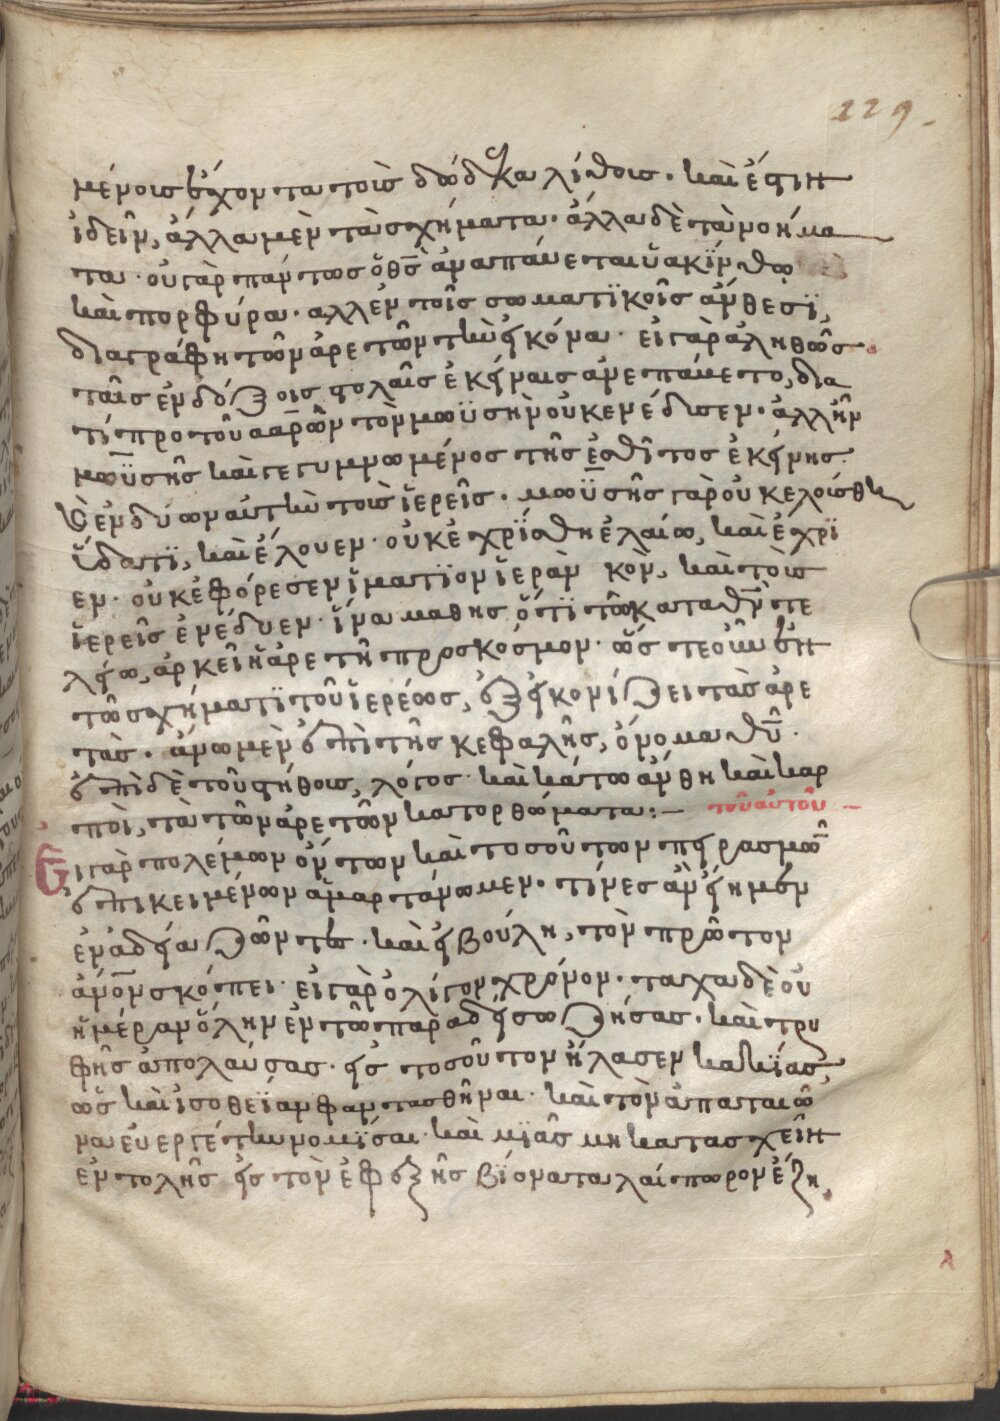 229
μένοις ἔχοντα τοῖς δώδεκα λίθοις. καὶ ἔστιν
ἰδεῖν, ἄλλα μὲν τὰ σχήματα. ἄλλα δὲ τὰ νοήμα
τα. οὐ γὰρ πάντως ὁ θς ἀναπαύεται ὑακίνθω
καὶ πορφύρα. ἀλλ ἐν τοῖς σωματϊκοῖς ἄνθεσϊ,
διαγράφη τῶν ἀρετῶν τὴν εἰκόνα. εἰ γὰρ ἀληθῶς
ταῖς ἐνδόξοις στολαῖς ἐκείναις ἀνεπάυετο, δια
τί προ τοῦ ααρῶν τὸν μωϋσὴν οὐκ ενέδισεν. ἀλλ ἦν
μωϋσῆς καὶ γεγυμνωμένος τῆς ἐσθῖτος ἐκείνης.
ὁ ἐνδύων αὐτὴν τοῖς ἱερεῖς. μωϋσῆς γὰρ οὐκ ελούσθη
ὕδατϊ, καὶ ἔλουεν. οὐκ ἐχρϊσθη ἐλαίω, καὶ ἔχρϊ
εν. οὐκ ἐφόρεσεν ἱματϊον ἱερὰν κὸν, καὶ τοὶς
ἱερεῖς ἐνέδυεν. ἵνα μαθης ὅτϊ τῶ κατα θν τε
λείω, ἀρκεῖ ἡ ἀρετὴ προς κόσμον. ὥς τε οὖν ἔν
τῶ σχήματϊ τοῦ ἱερέως, ἐξεικονίζει τὰς ἀρε
τὰς. ἄνω μὲν ἐπὶ τῆς κεφαλῆς, ὄνομα θῦ.
ἐπὶ δὲ τοῦ στήθους, λόγος. καὶ κάτω ἄνθη καὶ καρ
ποὶ, τὰ τῶν ἀρετῶν κατορθώματα:— τοῦ αὐτοῦ —
Εἰ γὰρ πολέμων ὄντων καὶ τοσούτων πειρασμῶν
ἐπικειμένων ἁμαρτάνωμεν. τίνες ἂν εἴημεν
ἐν ἀδεία ζῶντες. καὶ εἰ βούλη, τὸν πρῶτον
ἄνον σκόπει. εἰ γὰρ ὀλίγον χρόνον. ταχα δὲ οὐ
ἡμέραν ὅλην ἐν τῶ παραδείσω ζήσας. καὶ τρυ
φῆς ἀπολαύσας. εἰς τοσοῦτον ἤλασεν κακϊας,
ὡς καὶ ἰσοθεΐαν φαντασθῆναι. καὶ τὸν ἀπαταιῶ
να ἐυεργέτην νομΐσαι. καὶ μϊᾶς μὴ κατασχεῖν
ἐντολῆς εἰς τὸν ἐφεξῆς βίον αταλαίπωρον ἔζη,
λ